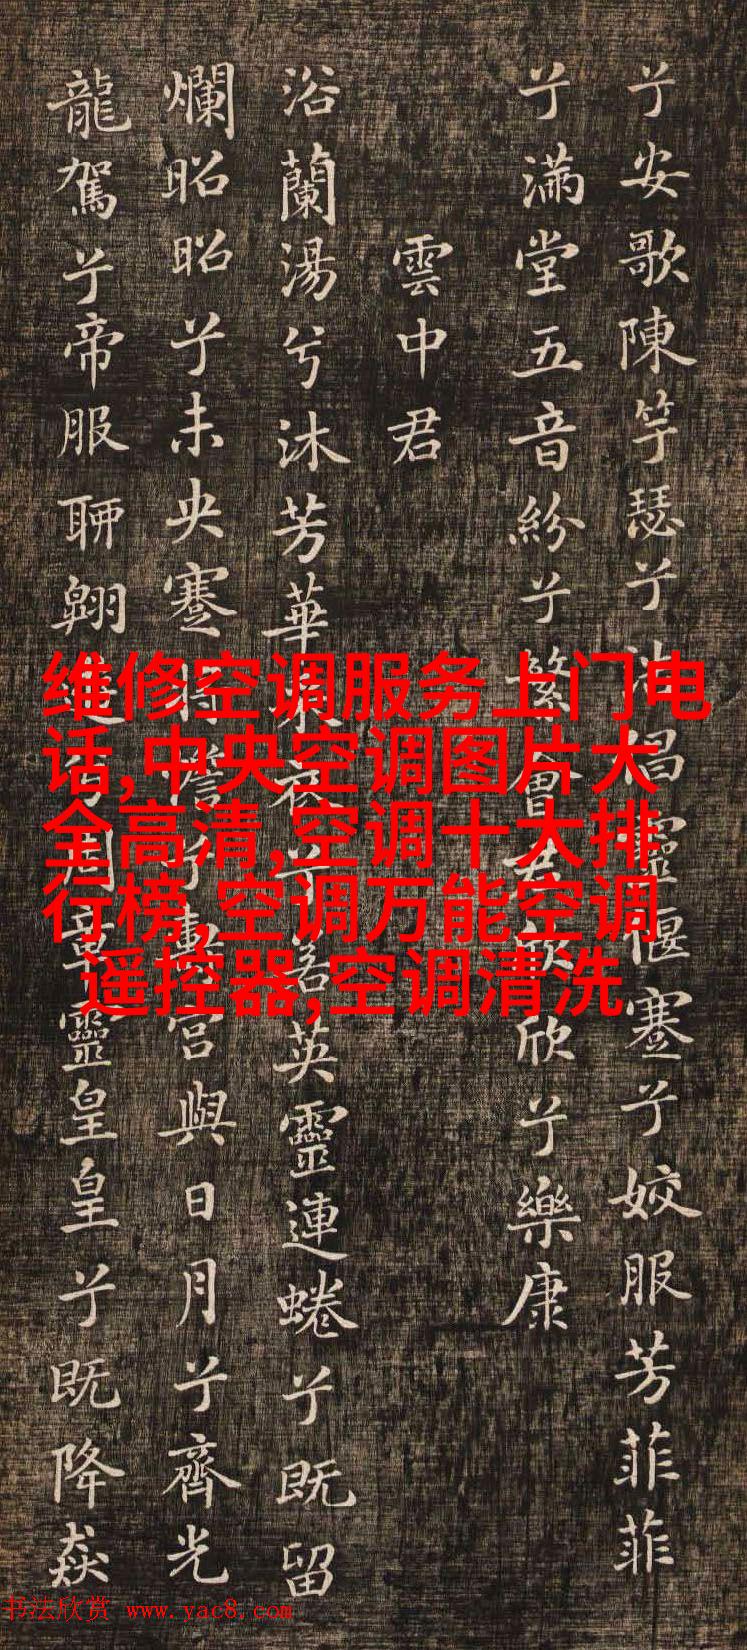 兮安歌陳竽瑟兮浩倡靈偃蹇兮姣服芳菲菲
兮滿堂五音紛兮繁會君欣欣兮樂康
雲中君
浴蘭湯兮沐芳華采衣兮若英靈連蜷兮既留
爛昭昭兮未央蹇將憺兮壽宮與日月兮齊光
龍駕兮帝服聊翱遊兮周章靈皇皇兮既降猋
维修空调服务上门电
话,中央空调图片大
全高清,空调十大排
行榜,空调万能空调
遥控器,空调清洗
书法欣赏 www.yac8.com